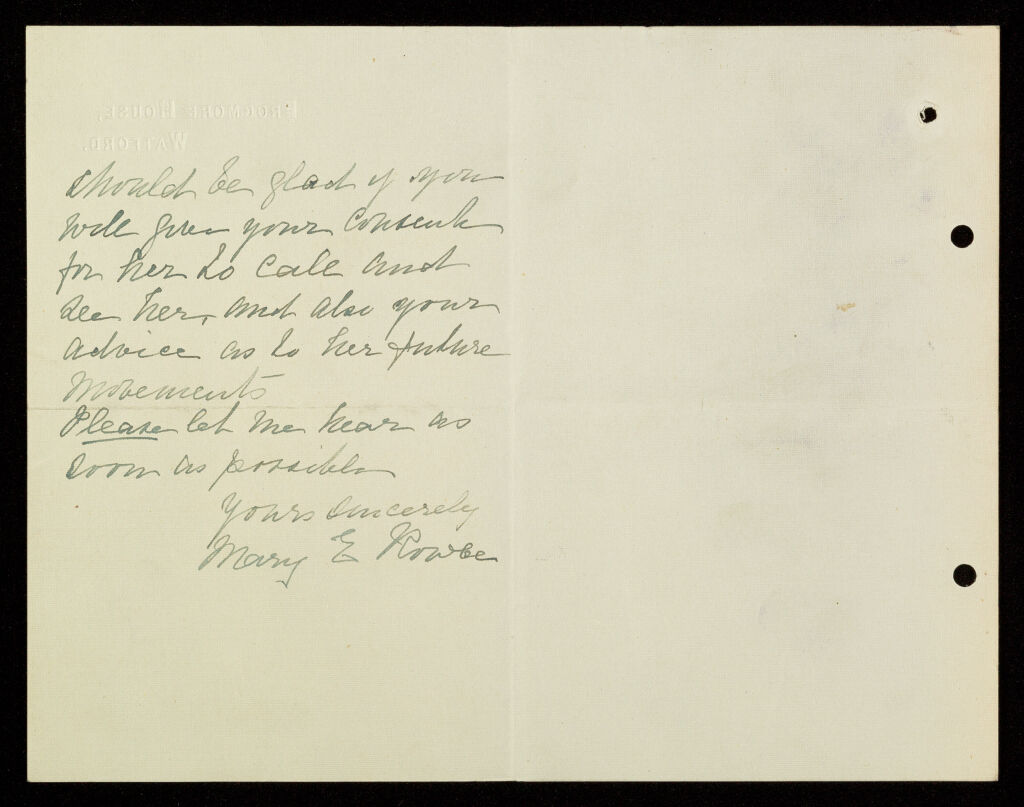 FROGMORE HOUSE,
WATFORD.
should be glad if you
will give your consent
for her to call and
see her, and also your
advice as to her future
movements
Please let me hear as
soon as possible
Yours sincerely
Mary E